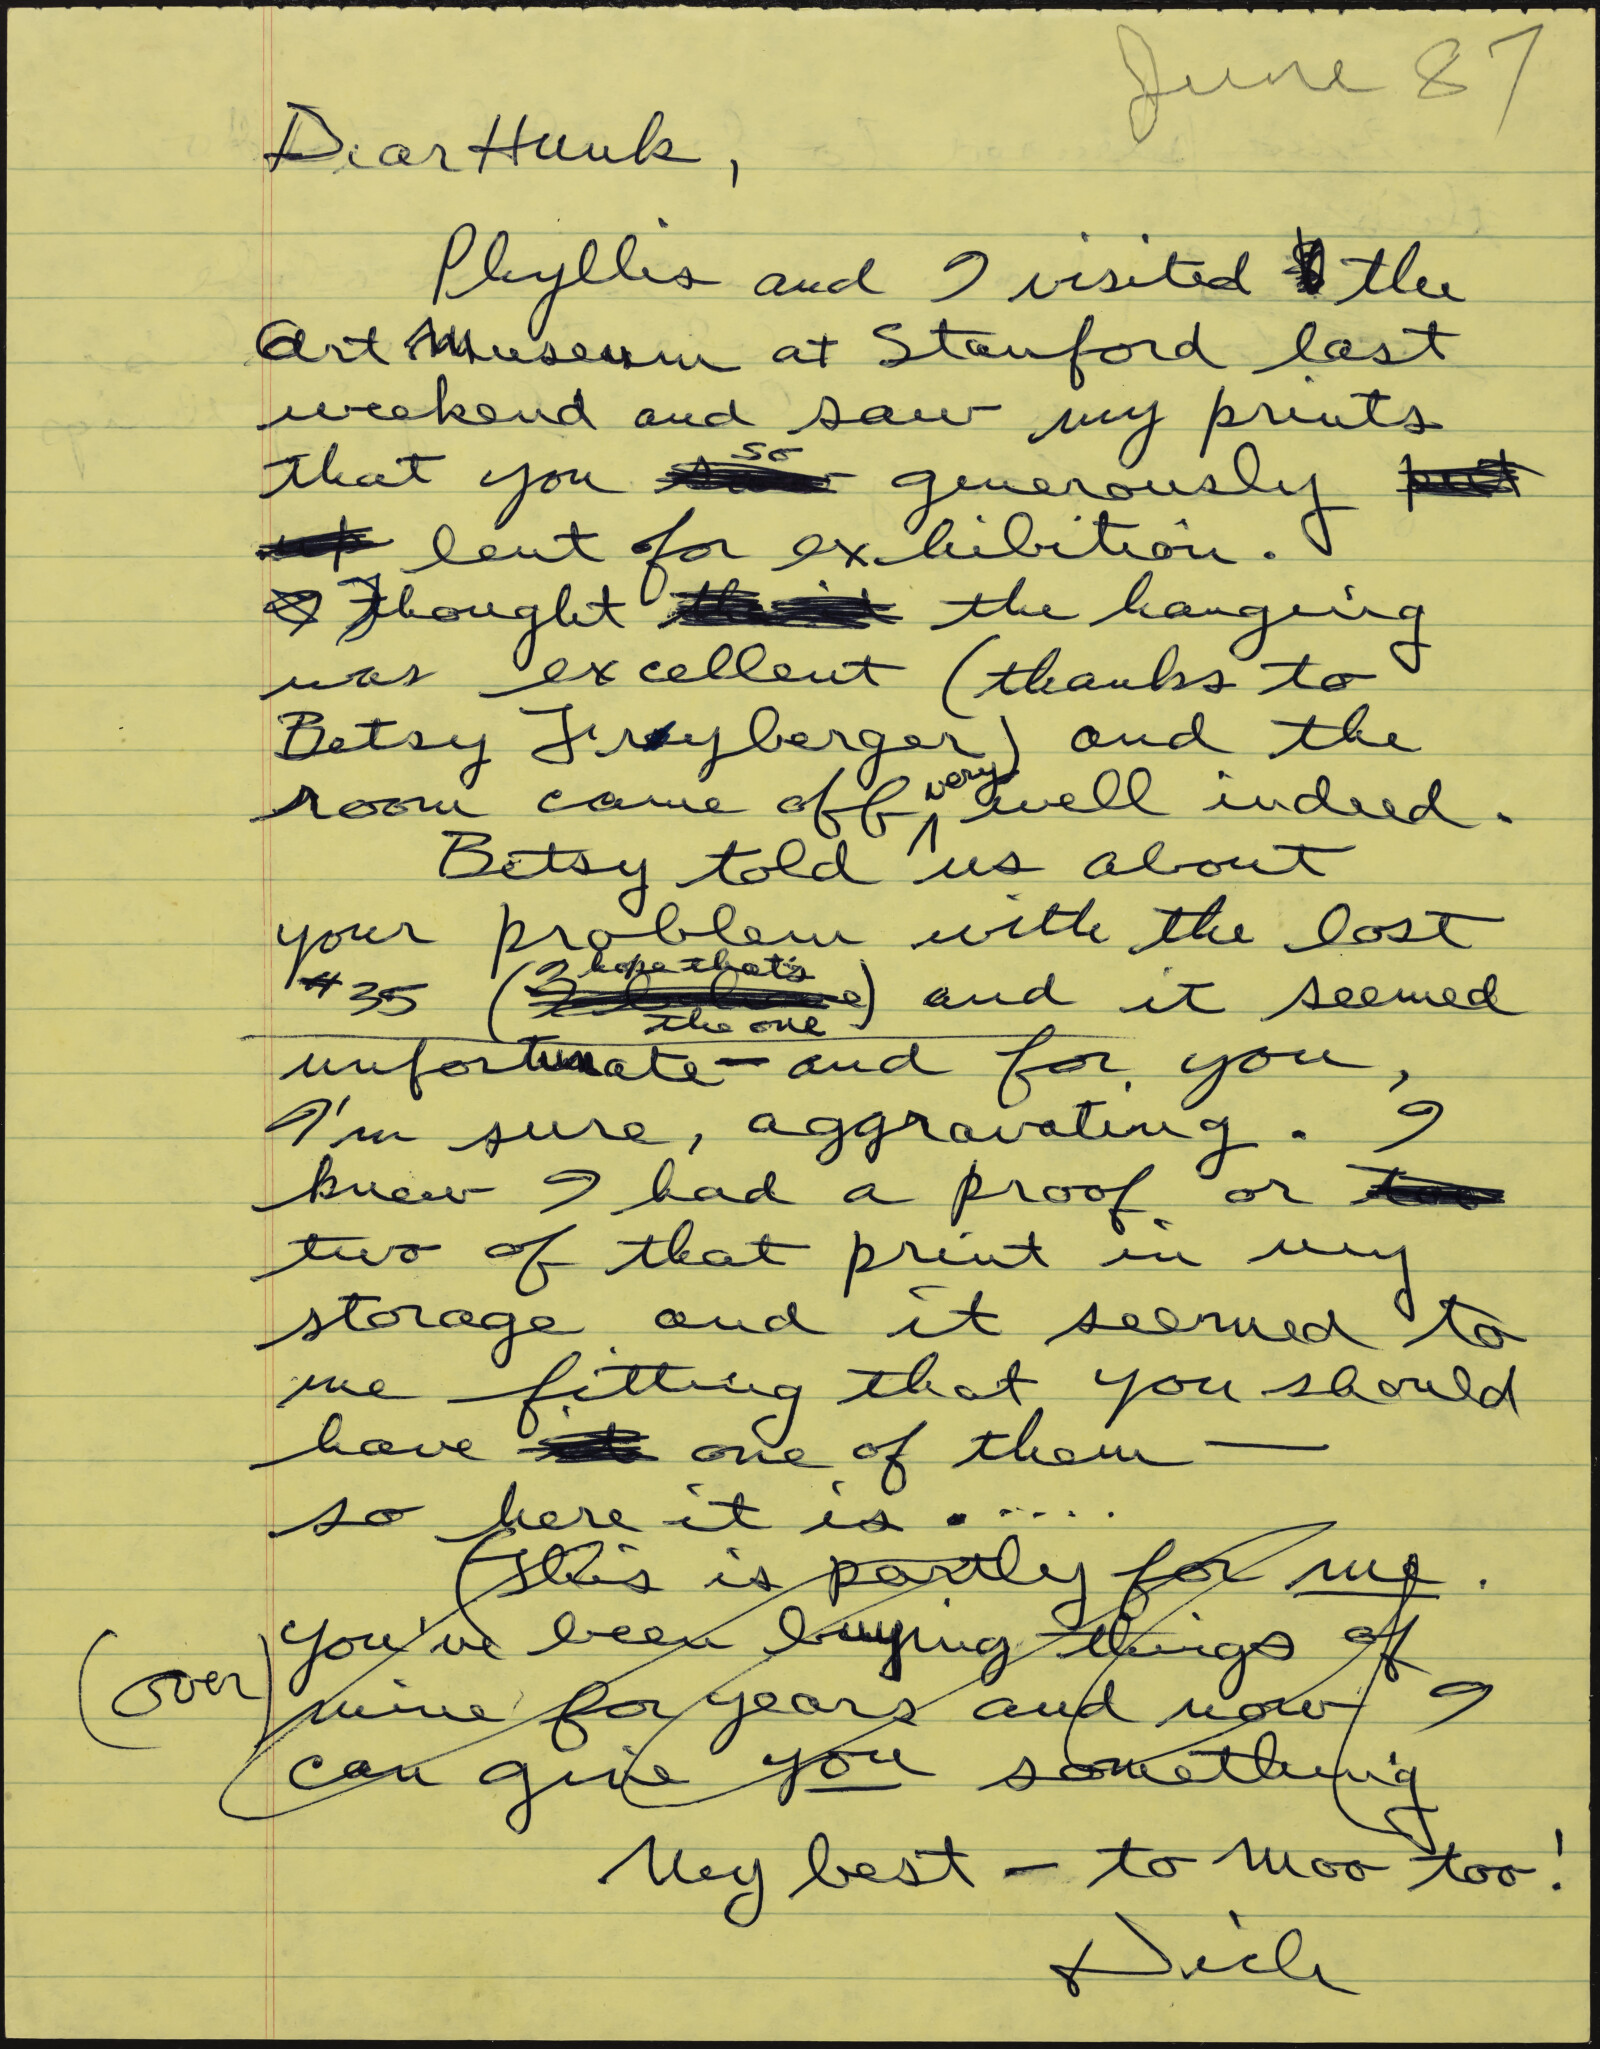 June 87
Dear Hunk,
Phyllis and I visited the
Art Museum at Stanford last
weekend and saw my prints
that you so generously put
up lent for exhibition.
I thought the hanging
was excellent (thanks to
Betsy Fryberger) and the
room came off very well indeed.
Betsy told us about
your problem with the lost
#35 (I hope that's
the one) and it seemed
unfortunate - and for you,
I'm sure, aggravating. I
knew I had a proof or too
two of that print in my
storage and it seemed to
me fitting that you should
have it one of them —
so here it is . . . . .
(This is partly for me.
You've been buying things of
(over) mine for years and now I
can give you something
My best - to Moo too!
Dick